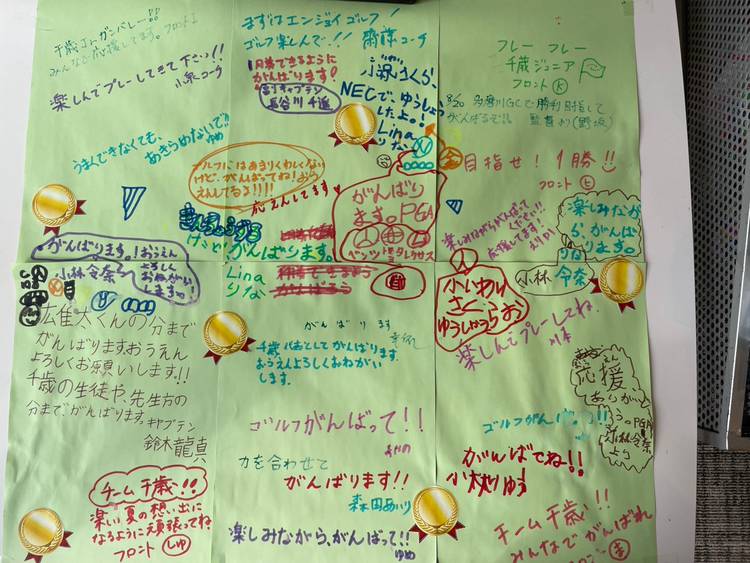 千歳Jr.ガンバレー!!
みんなで応援してます。フロント
楽しんでプレーしてきて下さいっ!!
小泉コーチ
うまくできなくても、
あきらめないで
ゆめ
まずはエンジョイゴルフ!
ゴルフ楽しんで!! 齋藤コーチ
1勝できるように
がんばります!
副キャプテン
長谷川千遥
NECで、ゆうしょう
したよ。!
Lina
りな
ゴルフにはあまりくわしくない
けど、がんばってね!おう
えんしてるよ!!!!
応えんしてます
がんばり
ます。PGA
ベンツ トヨタ レクサス
フレー フレー
千歳ジュニア
フロント
8/20 多摩川GCで勝利目指して
がんばるぞ!! 監督より(野坂)
目指せ!1勝!!
フロント
楽しみながらがんばって
ください!!
応援してます!
楽しみなが
ら、がんばり
ます。
りな
小林 令奈
がんばります。!おうえん
よろしく
おねがい
します。!
小林令奈
がんばります。
Lina
りな
小いわい
さく
ゆうしょうらお
楽しんでプレーしてね。
広隹太くんの分まで
がんばります。おうえん
よろしくお願いします!!
千歳の生徒や、先生方の
分まで、がんばります。
キャプテン
鈴木龍真
がんばります
千歳代表としてがんばります。
おうえんよろしくおねがい
します。
ゴルフがんばって!!
力を合わせて
がんばります!!
森田あいり
楽しみながら、がんばって!!
ゆめ
応援
ありが
とう。PGA
小林令奈
より
ゴルフがんばって!!
がんばてね!!
チーム千歳!!
楽しい夏の想い出に
なるように頑張ってね
フロント しゅ
チーム千歳!!
みんなでがんばれ
フロント